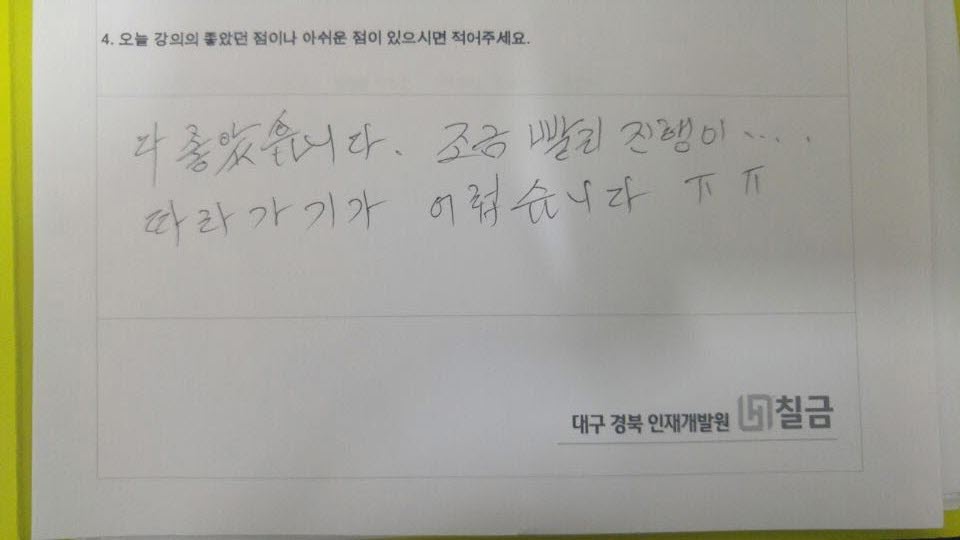 4. 오늘 강의의 좋았던 점이나 아쉬운 점이 있으시면 적어주세요.
다 좋았습니다. 조금 빨리 진행이 ....
따라가기가 어렵습니다 ㅠㅠ
대구 경북 인재개발원 칠금